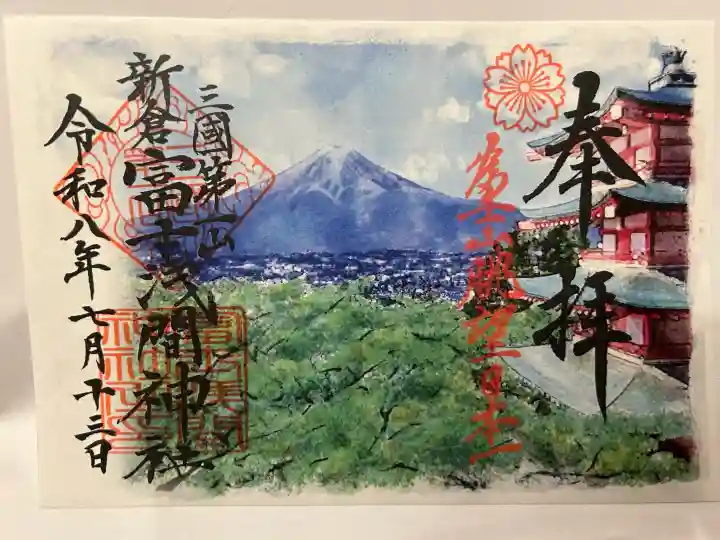 奉拝
富士山眺望日本一
三國第一山
新倉富士浅間神社
令和八年七月十三日